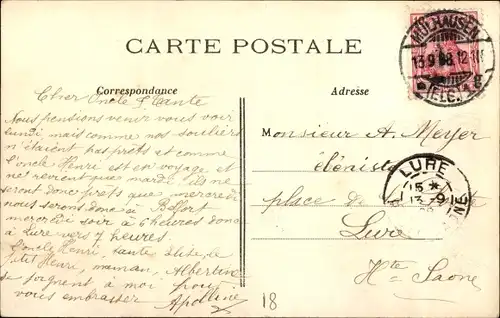 CARTE POSTALE
Correspondance
Adresse
MÜLHAUSEN
13.9.08.12-1N
(ELS.) * B
Cher Oncle & Tante
Nous pensions venir vous voir
lundi mais comme nos souliers
n'étaient pas prêts et comme
l'oncle Henri est en voyage et
ne revient que mardi ils ne
seront donc prêts que mercredi
nous serons donc à Belfort
mercredi soir à 6 heures donc
à Lure vers 7 heures.
L'oncle Henri, tante Elise, le
petit Henri, maman, Albertine
se joignent à moi pour
vous embrasser Apolline
Monsieur A. Meyer
place de
Lure
Hte Saone
LURE
15 *
13-9
18